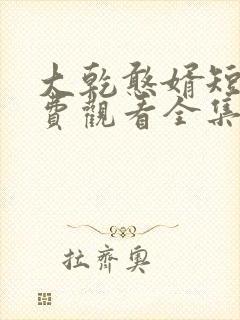 大乾憨婿短
費觀看全集
拉齊奧